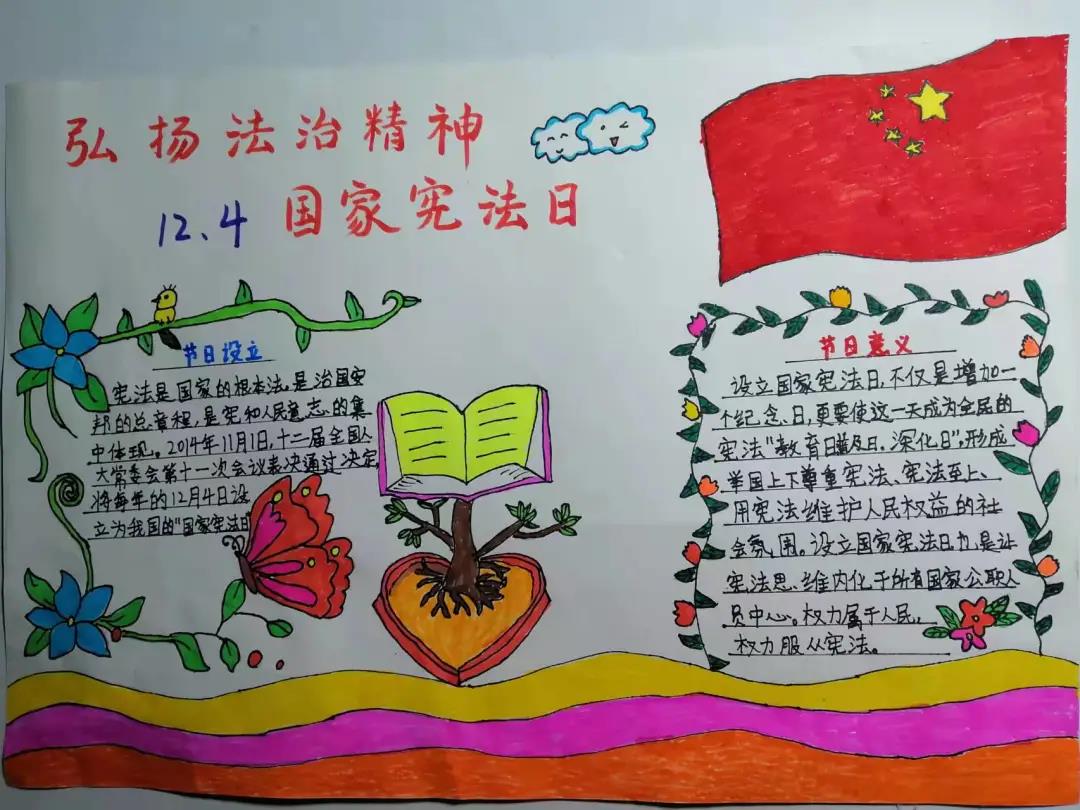 弘扬法治精神
12.4 国家宪法日
节日设立
宪法是国家的根本法,是治国安
邦的总章程,是宪和人民意志的集
中体现。2014年11月1日,十二届全国人
大常委会第十一次会议表决通过决定,
将每年的12月4日设
立为我国的"国家宪法日
节日意义
设立国家宪法日,不仅是增加一
个纪念日,更要使这一天成为全民的
宪法"教育日普及日、深化日",形成
举国上下尊重宪法、宪法至上、
用宪法维护人民权益的社
会氛围。设立国家宪法日,是让
宪法思维内化于所有国家公职人
员中心。权力属于人民,
权力服从宪法。